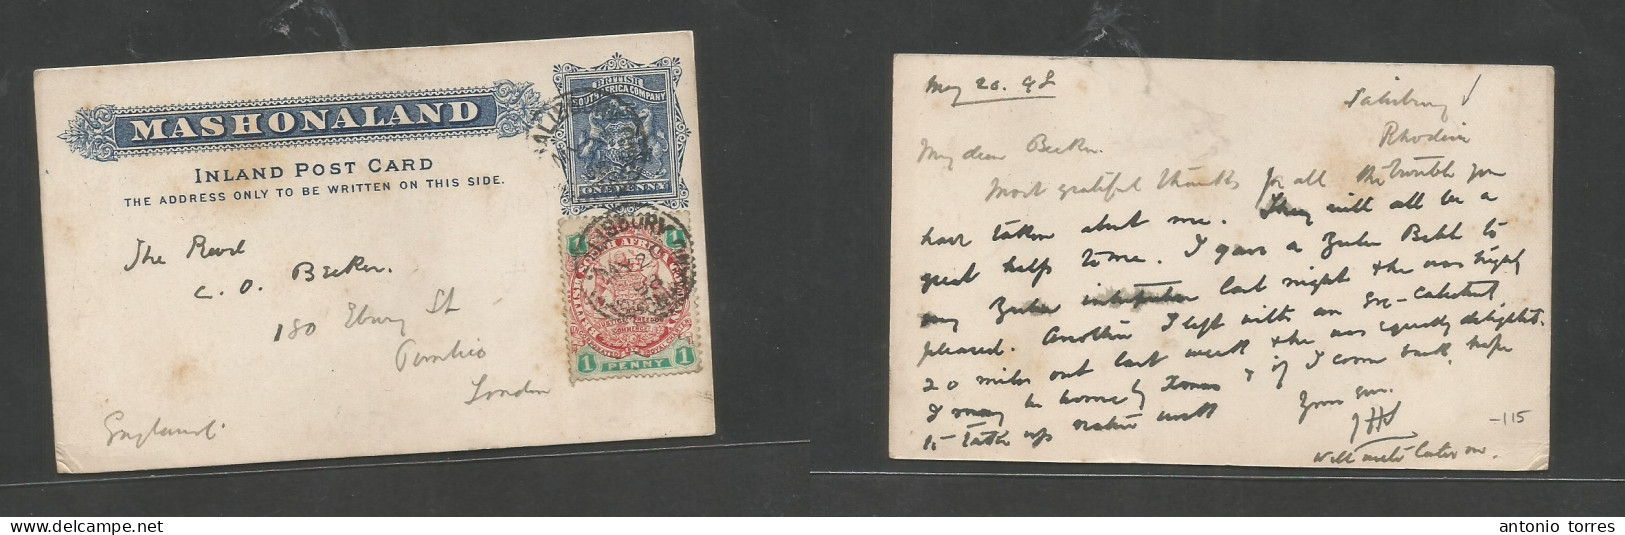 MASHONALAND
INLAND POST CARD
THE ADDRESS ONLY TO BE WRITTEN ON THIS SIDE.
BRITISH
SOUTH AFRICA COMPANY
ONE PENNY
1 1
BRITISH SOUTH AFRICA COMPANY
JUSTICE FREEDOM
COMMERCE
1 PENNY 1
SALISBURY
MAY 20
98
The Revd
C. O. Becker.
180 Ebury St
Pimlico
London
England.
May 20. 98
Salisbury
Rhodesia
My dear Becker.
Most grateful thanks for all the trouble you
have taken about me. They will all be a
great help to me. I gave a Zulu Bible to
my Zulu interpreter last night & he was highly
pleased. Another I left with an Ex-Catechist
20 miles out last week & he was equally delighted.
I may be home by Xmas & if I come back, hope
to take up native work
Yours ever
JHS
Will write later on.
-115
antonio torres